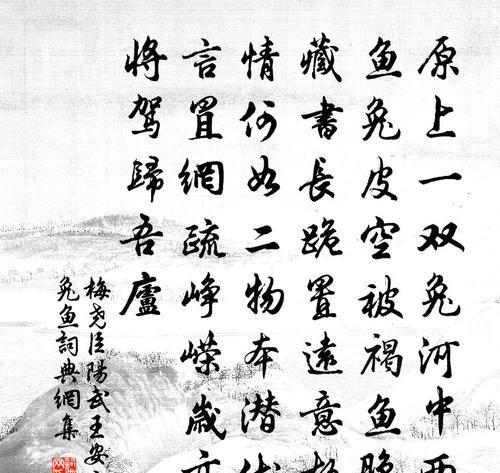 原上一双兔河中
鱼兔皮空被褐鱼
藏書長跪置遠意
情何如二物本潜
言罝網疏峥嵘歲
将駕歸吾廬
梅尧臣陽武王安
兔鱼詞典網集